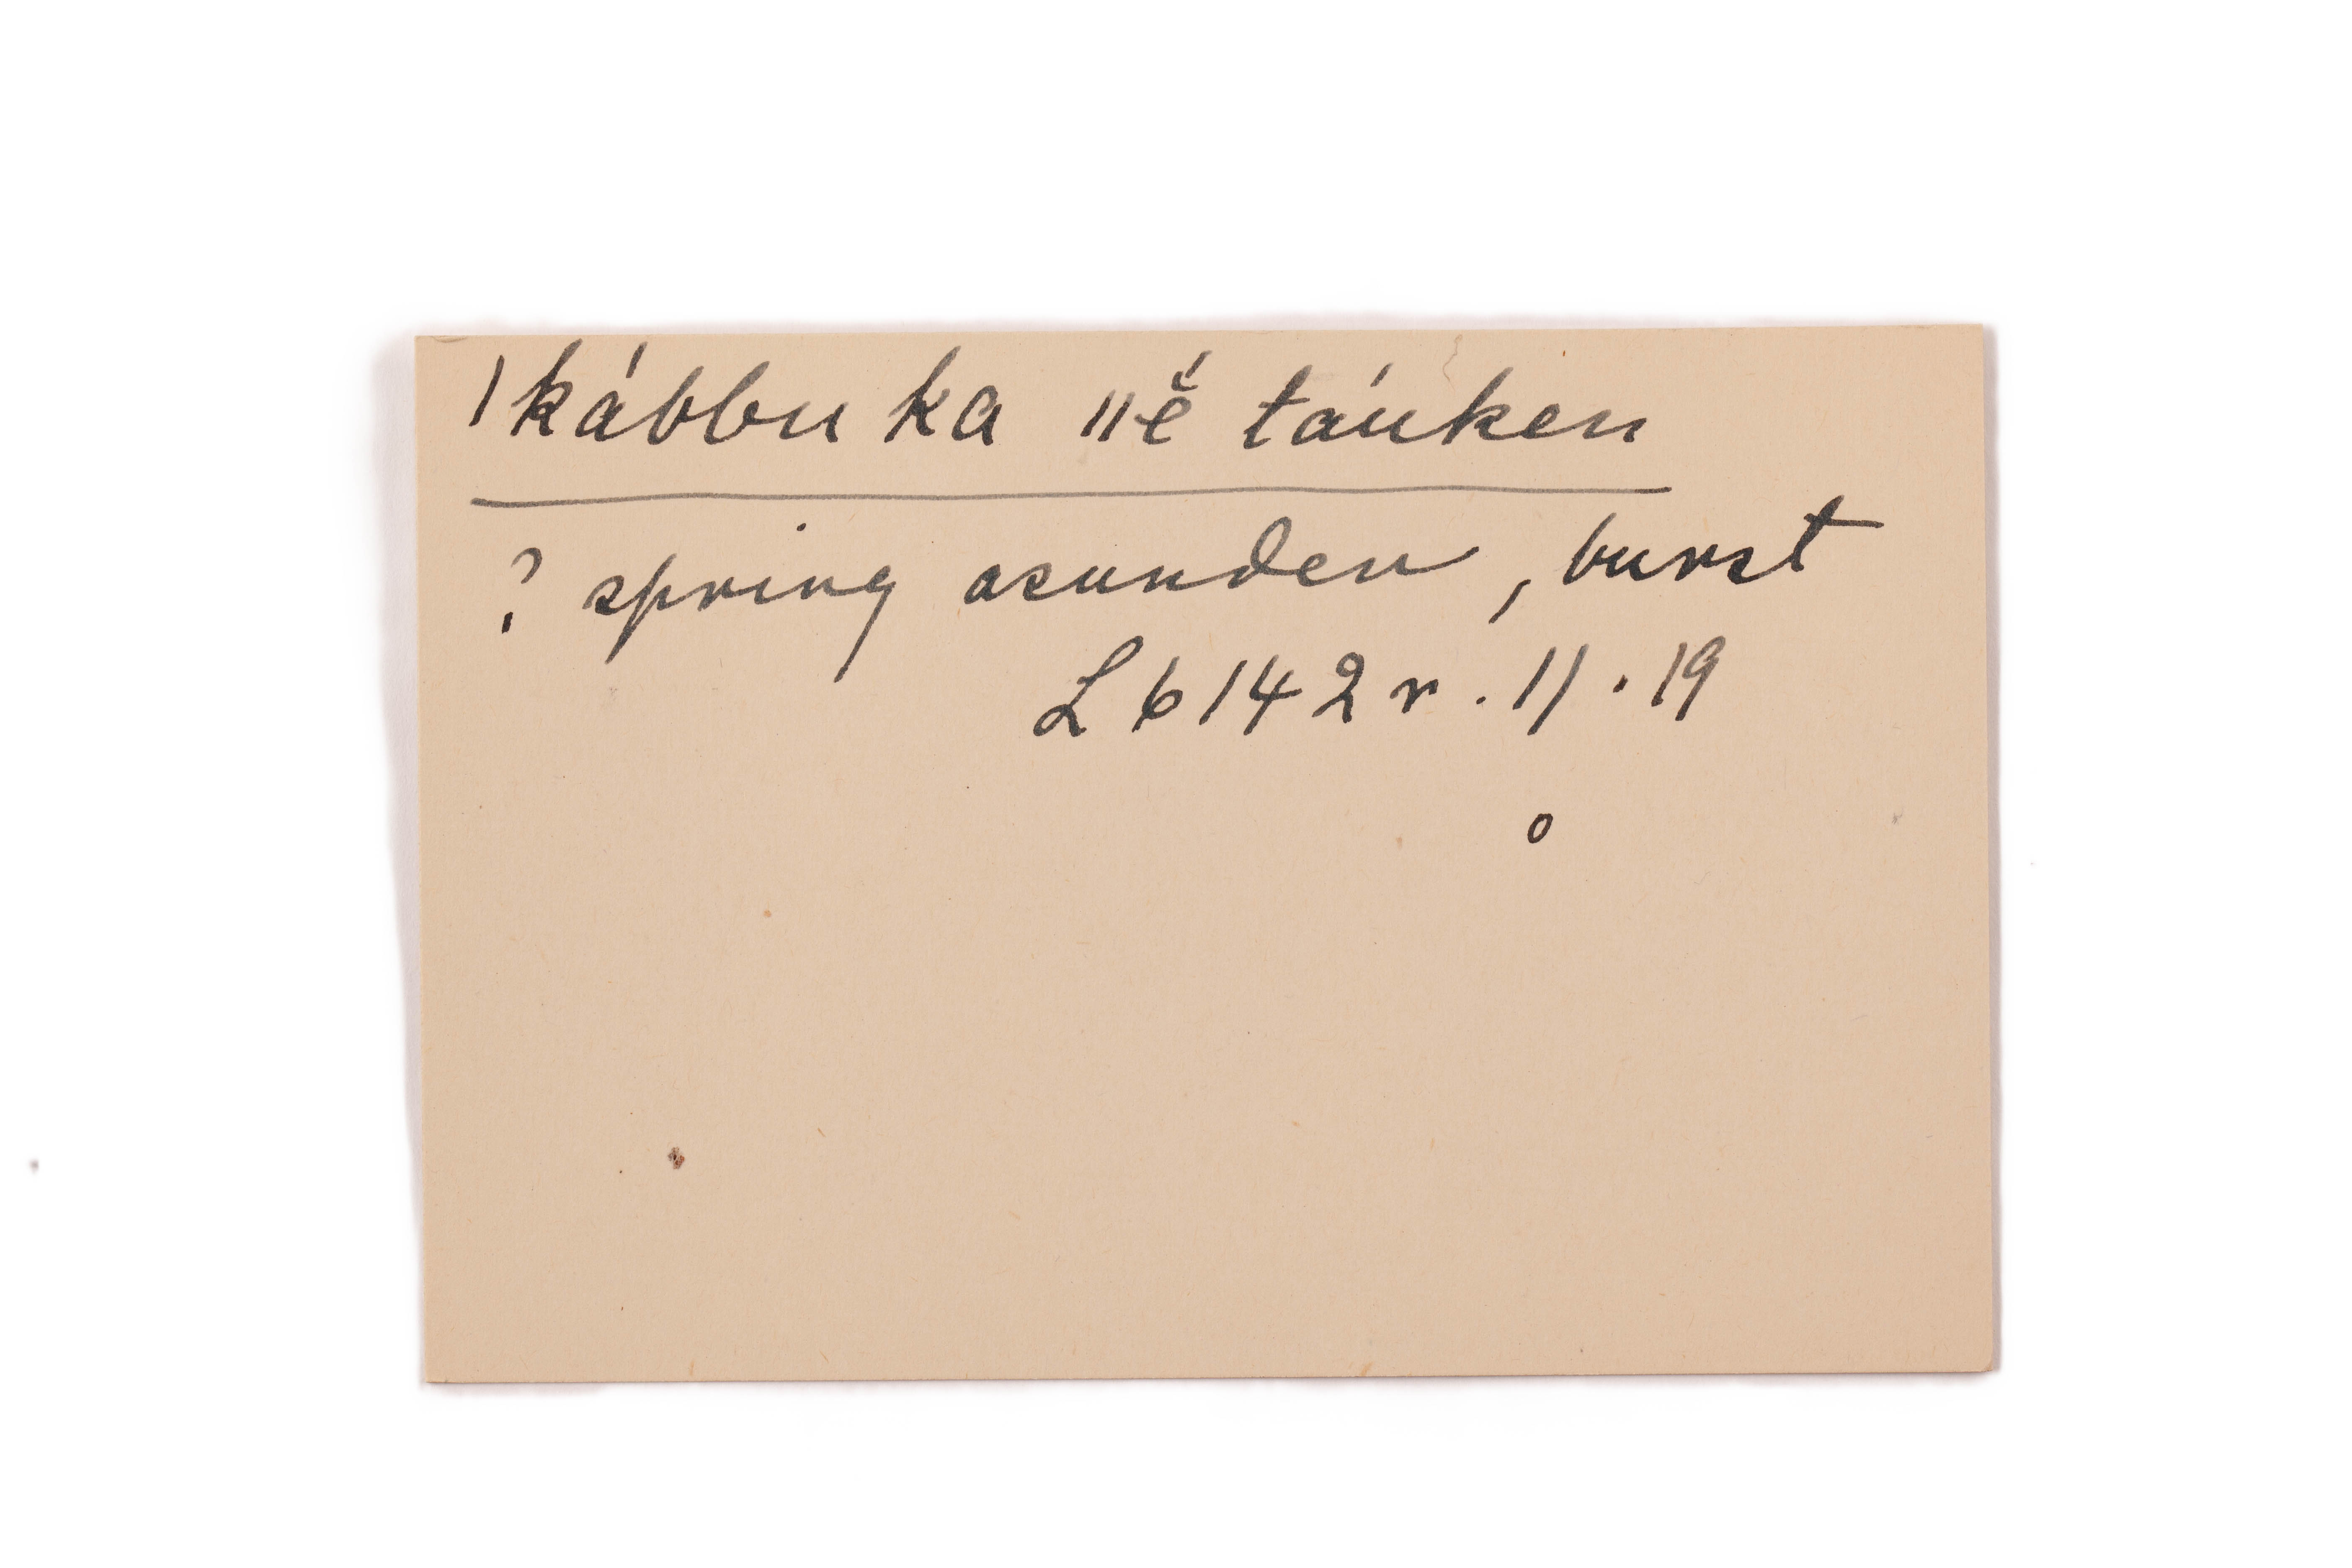 |kábbu ka ||ĕ́ táúken
? spring asunder, burst
L b 142 r. 11. 19
o